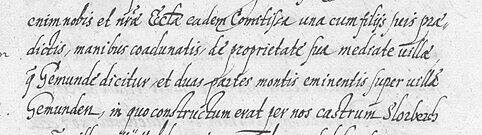 enim nobis et nr̃æ Ecctæ eadem Comitissa una cum filijs suis præ-
dictis, manibus coadunatis, de proprietate sua mediate̅ uillæ
q̃ Gemunde dicitur, et duas partes montis eminentis super uillã
Gemunden, in quo constructum erat per nos castrum Slorbech